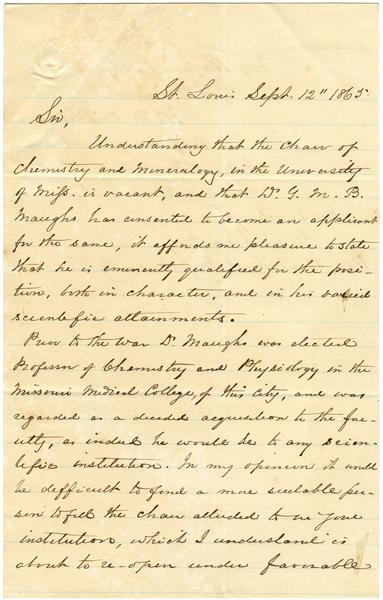 St. Louis Sept. 12" 1865
Sir,
Understanding that the Chair of
Chemistry and Mineralogy, in the University
of Miss. is vacant, and that Dr. G. M. B.
Maughs has consented to become an applicant
for the same, it affords me pleasure to state
that he is eminently qualified for the posi-
tion, both in character, and in his varied
scientific attainments.
Prior to the war Dr. Maughs was elected
Professor of Chemistry and Physiology in the
Missouri Medical College, of this City, and was
regarded as a decided acquisition to the fac-
ulty, as indeed he would be to any scien-
tific institution. In my opinion it would
be difficult to find a more suitable per-
son to fill the chair alluded to in your
institution, which I understand is
about to re-open under favorable